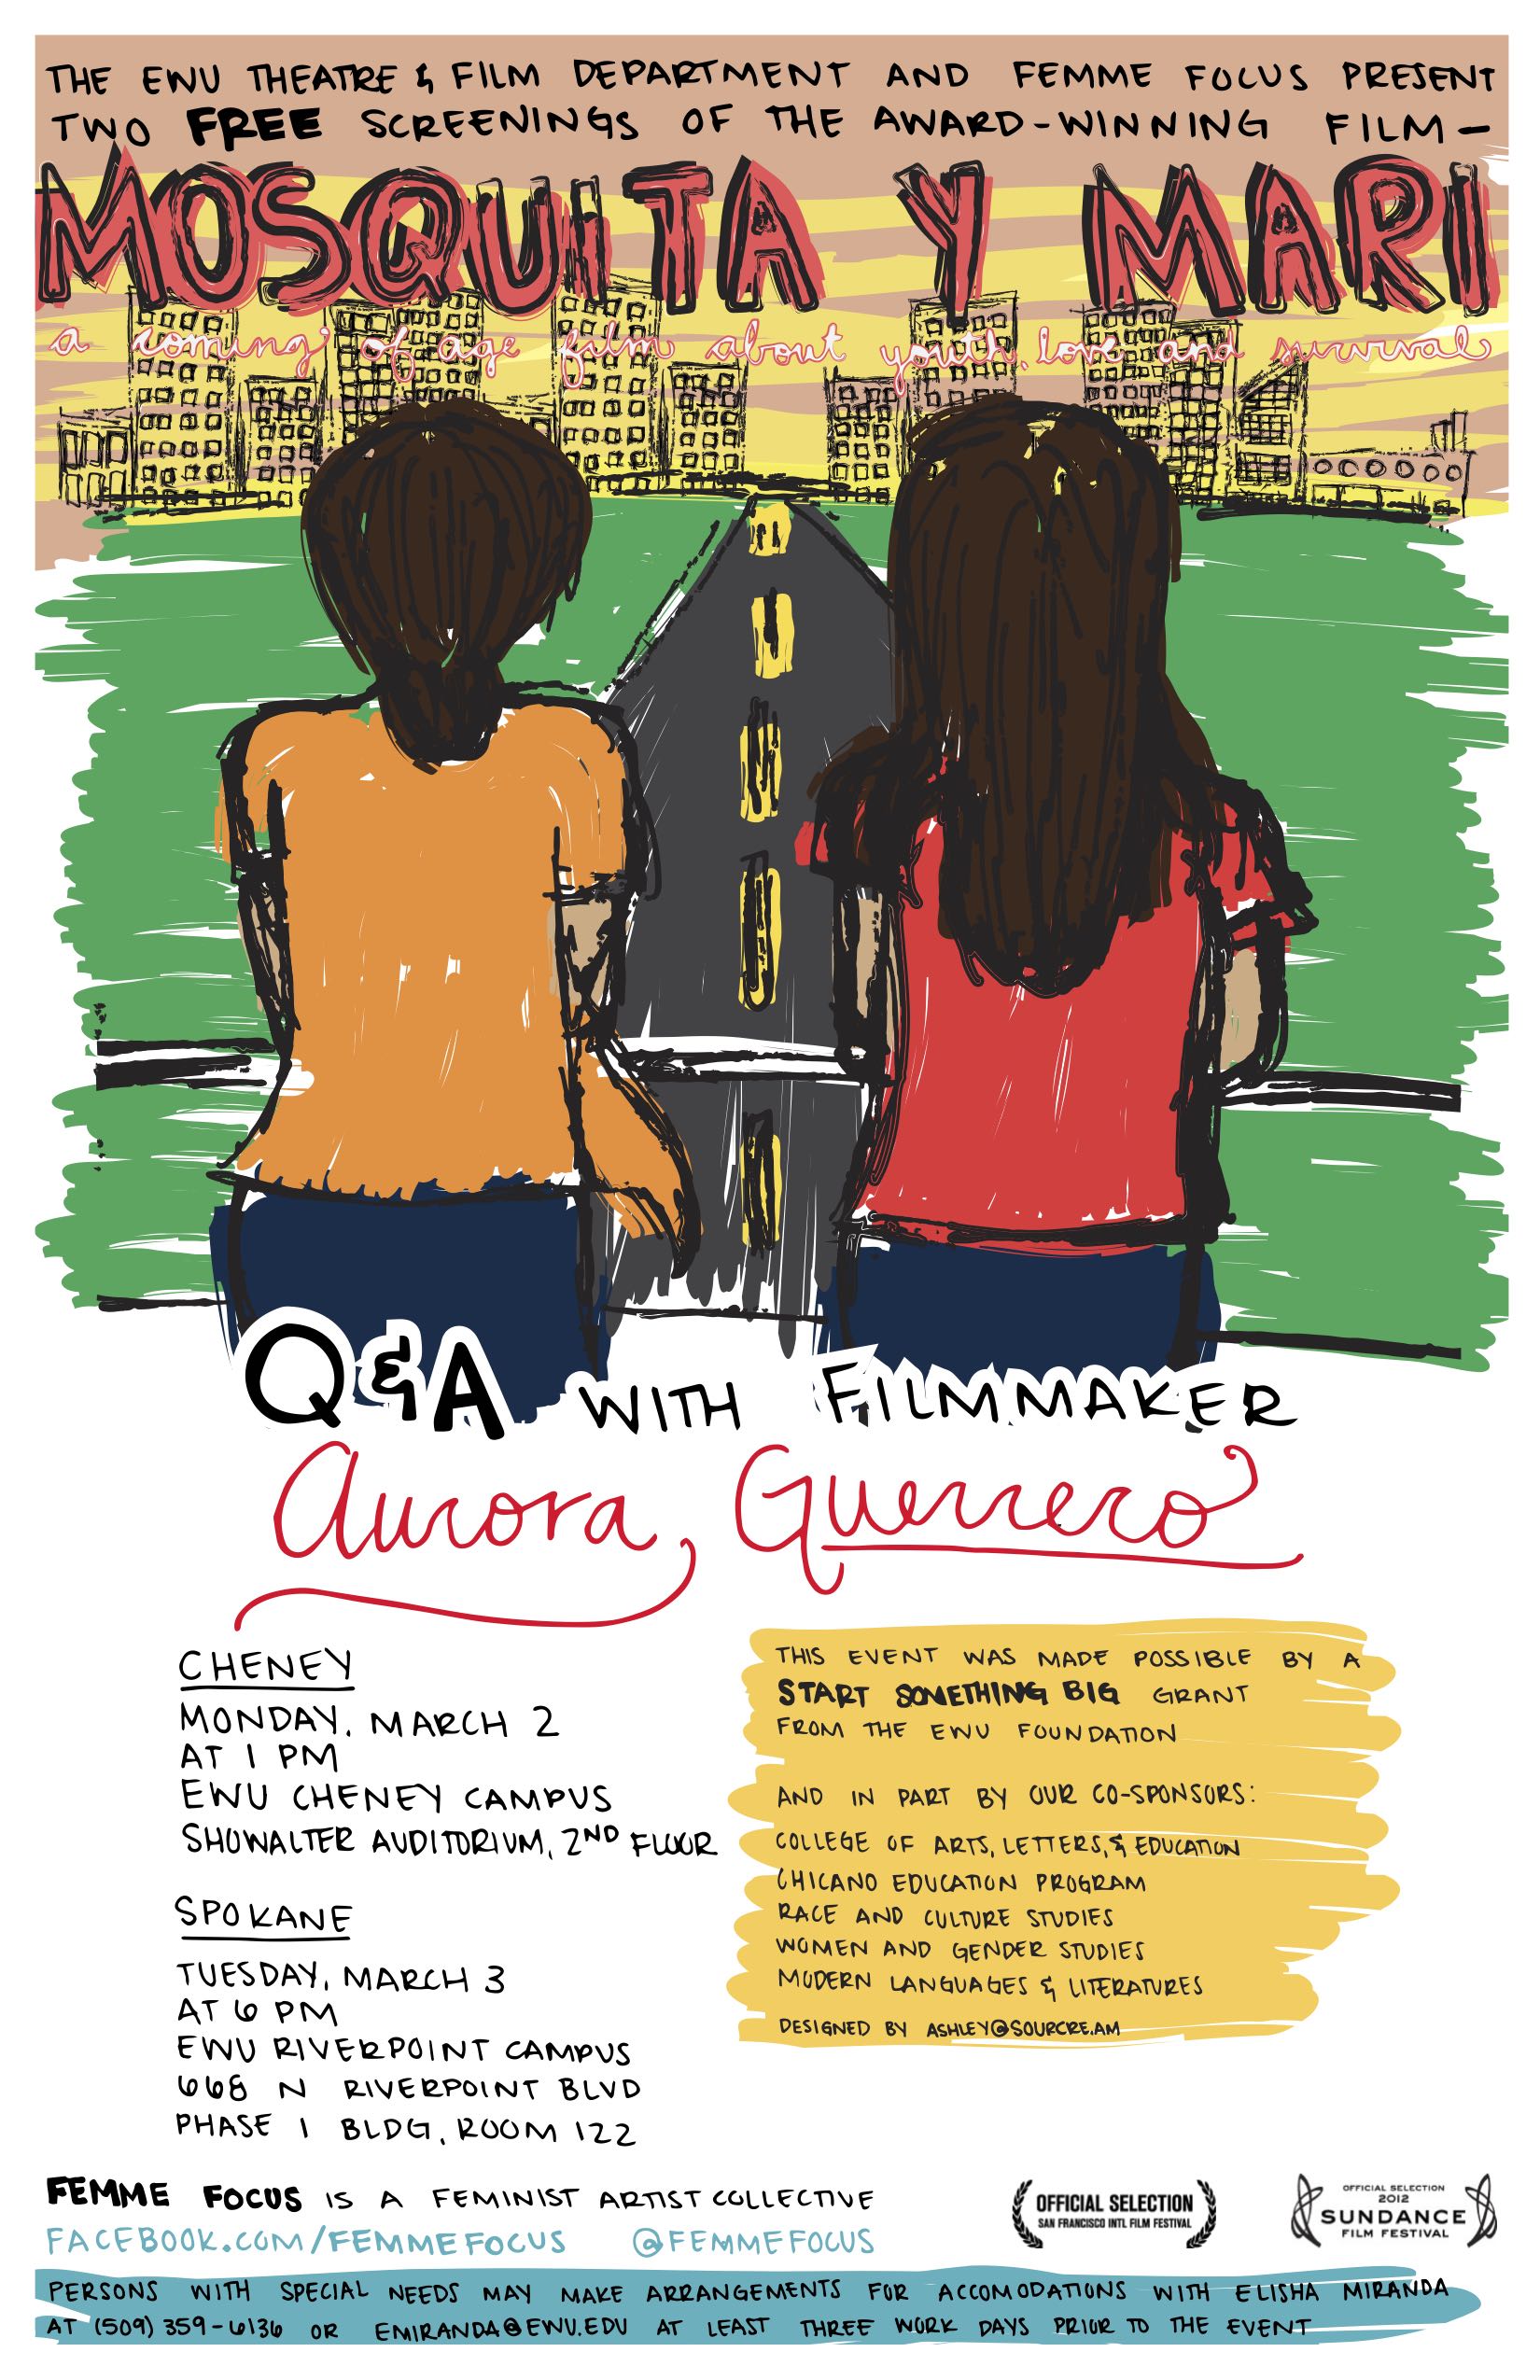 THE EWU THEATRE & FILM DEPARTMENT AND FEMME FOCUS PRESENT
TWO FREE SCREENINGS OF THE AWARD-WINNING FILM-
MOSQUITA Y MARI
a coming of age film about youth, love and survival
Q&A WITH FILMMAKER
Aurora Guerrero
CHENEY
MONDAY, MARCH 2
AT 1 PM
EWU CHENEY CAMPUS
SHOWALTER AUDITORIUM, 2ND FLOOR
SPOKANE
TUESDAY, MARCH 3
AT 6 PM
EWU RIVERPOINT CAMPUS
668 N RIVERPOINT BLVD
PHASE 1 BLDG, ROOM 122
THIS EVENT WAS MADE POSSIBLE BY A
START SOMETHING BIG GRANT
FROM THE EWU FOUNDATION
AND IN PART BY OUR CO-SPONSORS:
COLLEGE OF ARTS, LETTERS, & EDUCATION
CHICANO EDUCATION PROGRAM
RACE AND CULTURE STUDIES
WOMEN AND GENDER STUDIES
MODERN LANGUAGES & LITERATURES
DESIGNED BY ASHLEY@SOURCRE.AM
FEMME FOCUS IS A FEMINIST ARTIST COLLECTIVE
FACEBOOK.COM/FEMMEFOCUS @FEMMEFOCUS
OFFICIAL SELECTION
SAN FRANCISCO INTL FILM FESTIVAL
OFFICIAL SELECTION
2012
SUNDANCE
FILM FESTIVAL
PERSONS WITH SPECIAL NEEDS MAY MAKE ARRANGEMENTS FOR ACCOMODATIONS WITH ELISHA MIRANDA
AT (509) 359-6136 OR EMIRANDA@EWU.EDU AT LEAST THREE WORK DAYS PRIOR TO THE EVENT